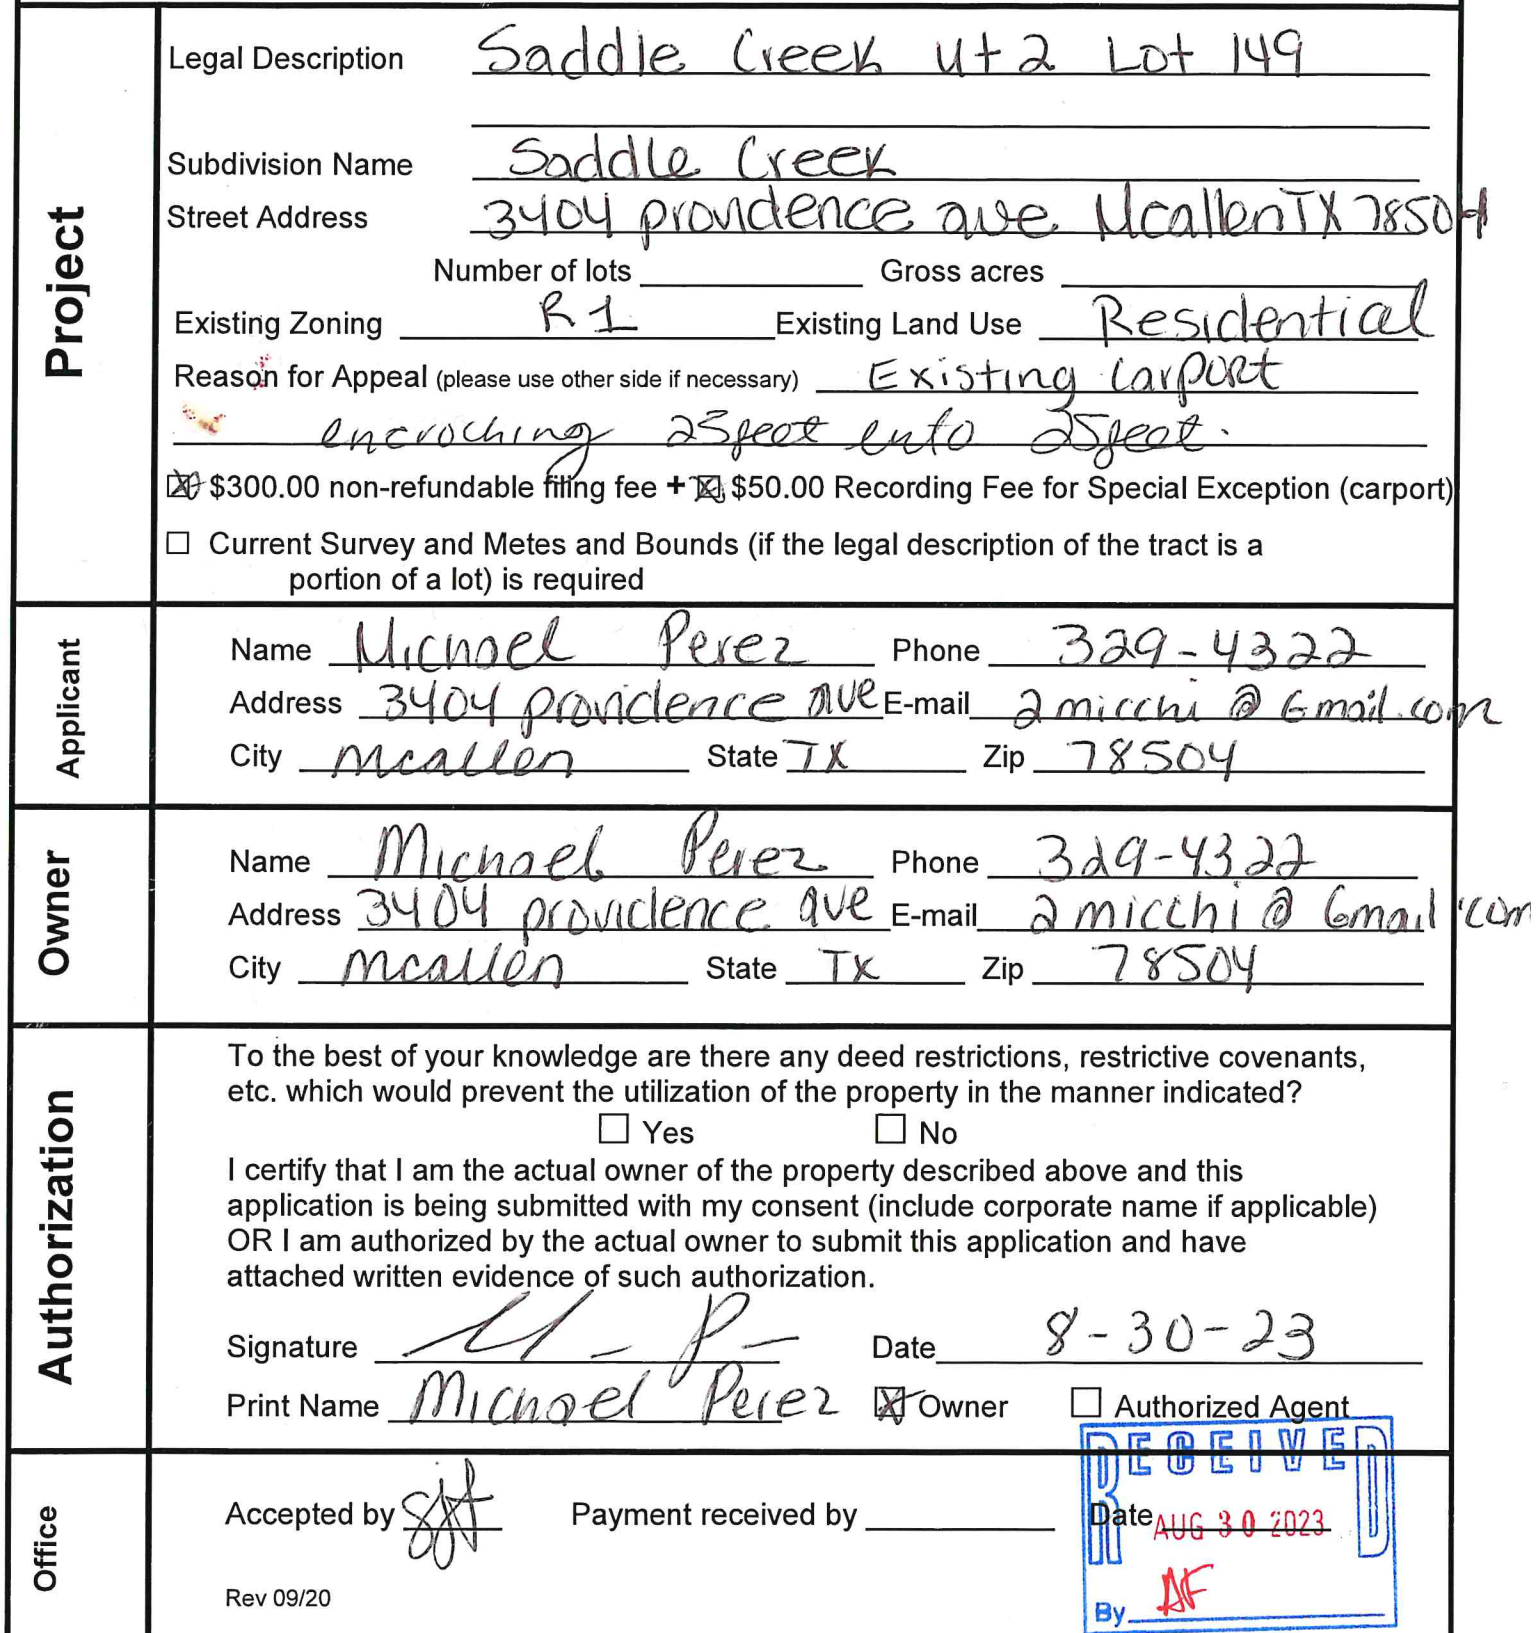 Project
Legal Description Saddle Creek ut 2 Lot 149
Subdivision Name Saddle Creek
Street Address 3404 providence ave Mcallen TX 78504
Number of lots Gross acres
Existing Zoning R1 Existing Land Use Residential
Reason for Appeal (please use other side if necessary) Existing Carport
encroching 25 feet into 25 feet.
☒ $300.00 non-refundable filing fee + ☒ $50.00 Recording Fee for Special Exception (carport)
☐ Current Survey and Metes and Bounds (if the legal description of the tract is a
portion of a lot) is required
Applicant
Name Michael Perez Phone 329-4322
Address 3404 providence ave E-mail 2micchi@Gmail.com
City mcallen State TX Zip 78504
Owner
Name Michael Perez Phone 329-4322
Address 3404 providence ave E-mail 2micchi@Gmail.com
City mcallen State TX Zip 78504
Authorization
To the best of your knowledge are there any deed restrictions, restrictive covenants,
etc. which would prevent the utilization of the property in the manner indicated?
☐ Yes ☐ No
I certify that I am the actual owner of the property described above and this
application is being submitted with my consent (include corporate name if applicable)
OR I am authorized by the actual owner to submit this application and have
attached written evidence of such authorization.
Signature Date 8-30-23
Print Name Michael Perez ☒ Owner ☐ Authorized Agent
RECEIVED
Office
Accepted by Payment received by Date AUG 30 2023
Rev 09/20
By AF